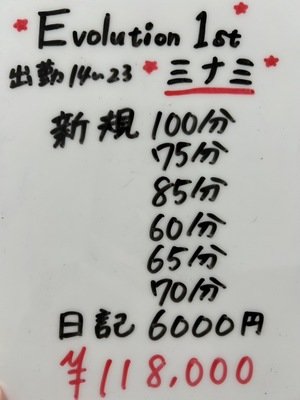 Evolution 1st
出勤14~23 三ナ三
新規 100分
75分
85分
60分
65分
70分
日記 6000円
¥118,000